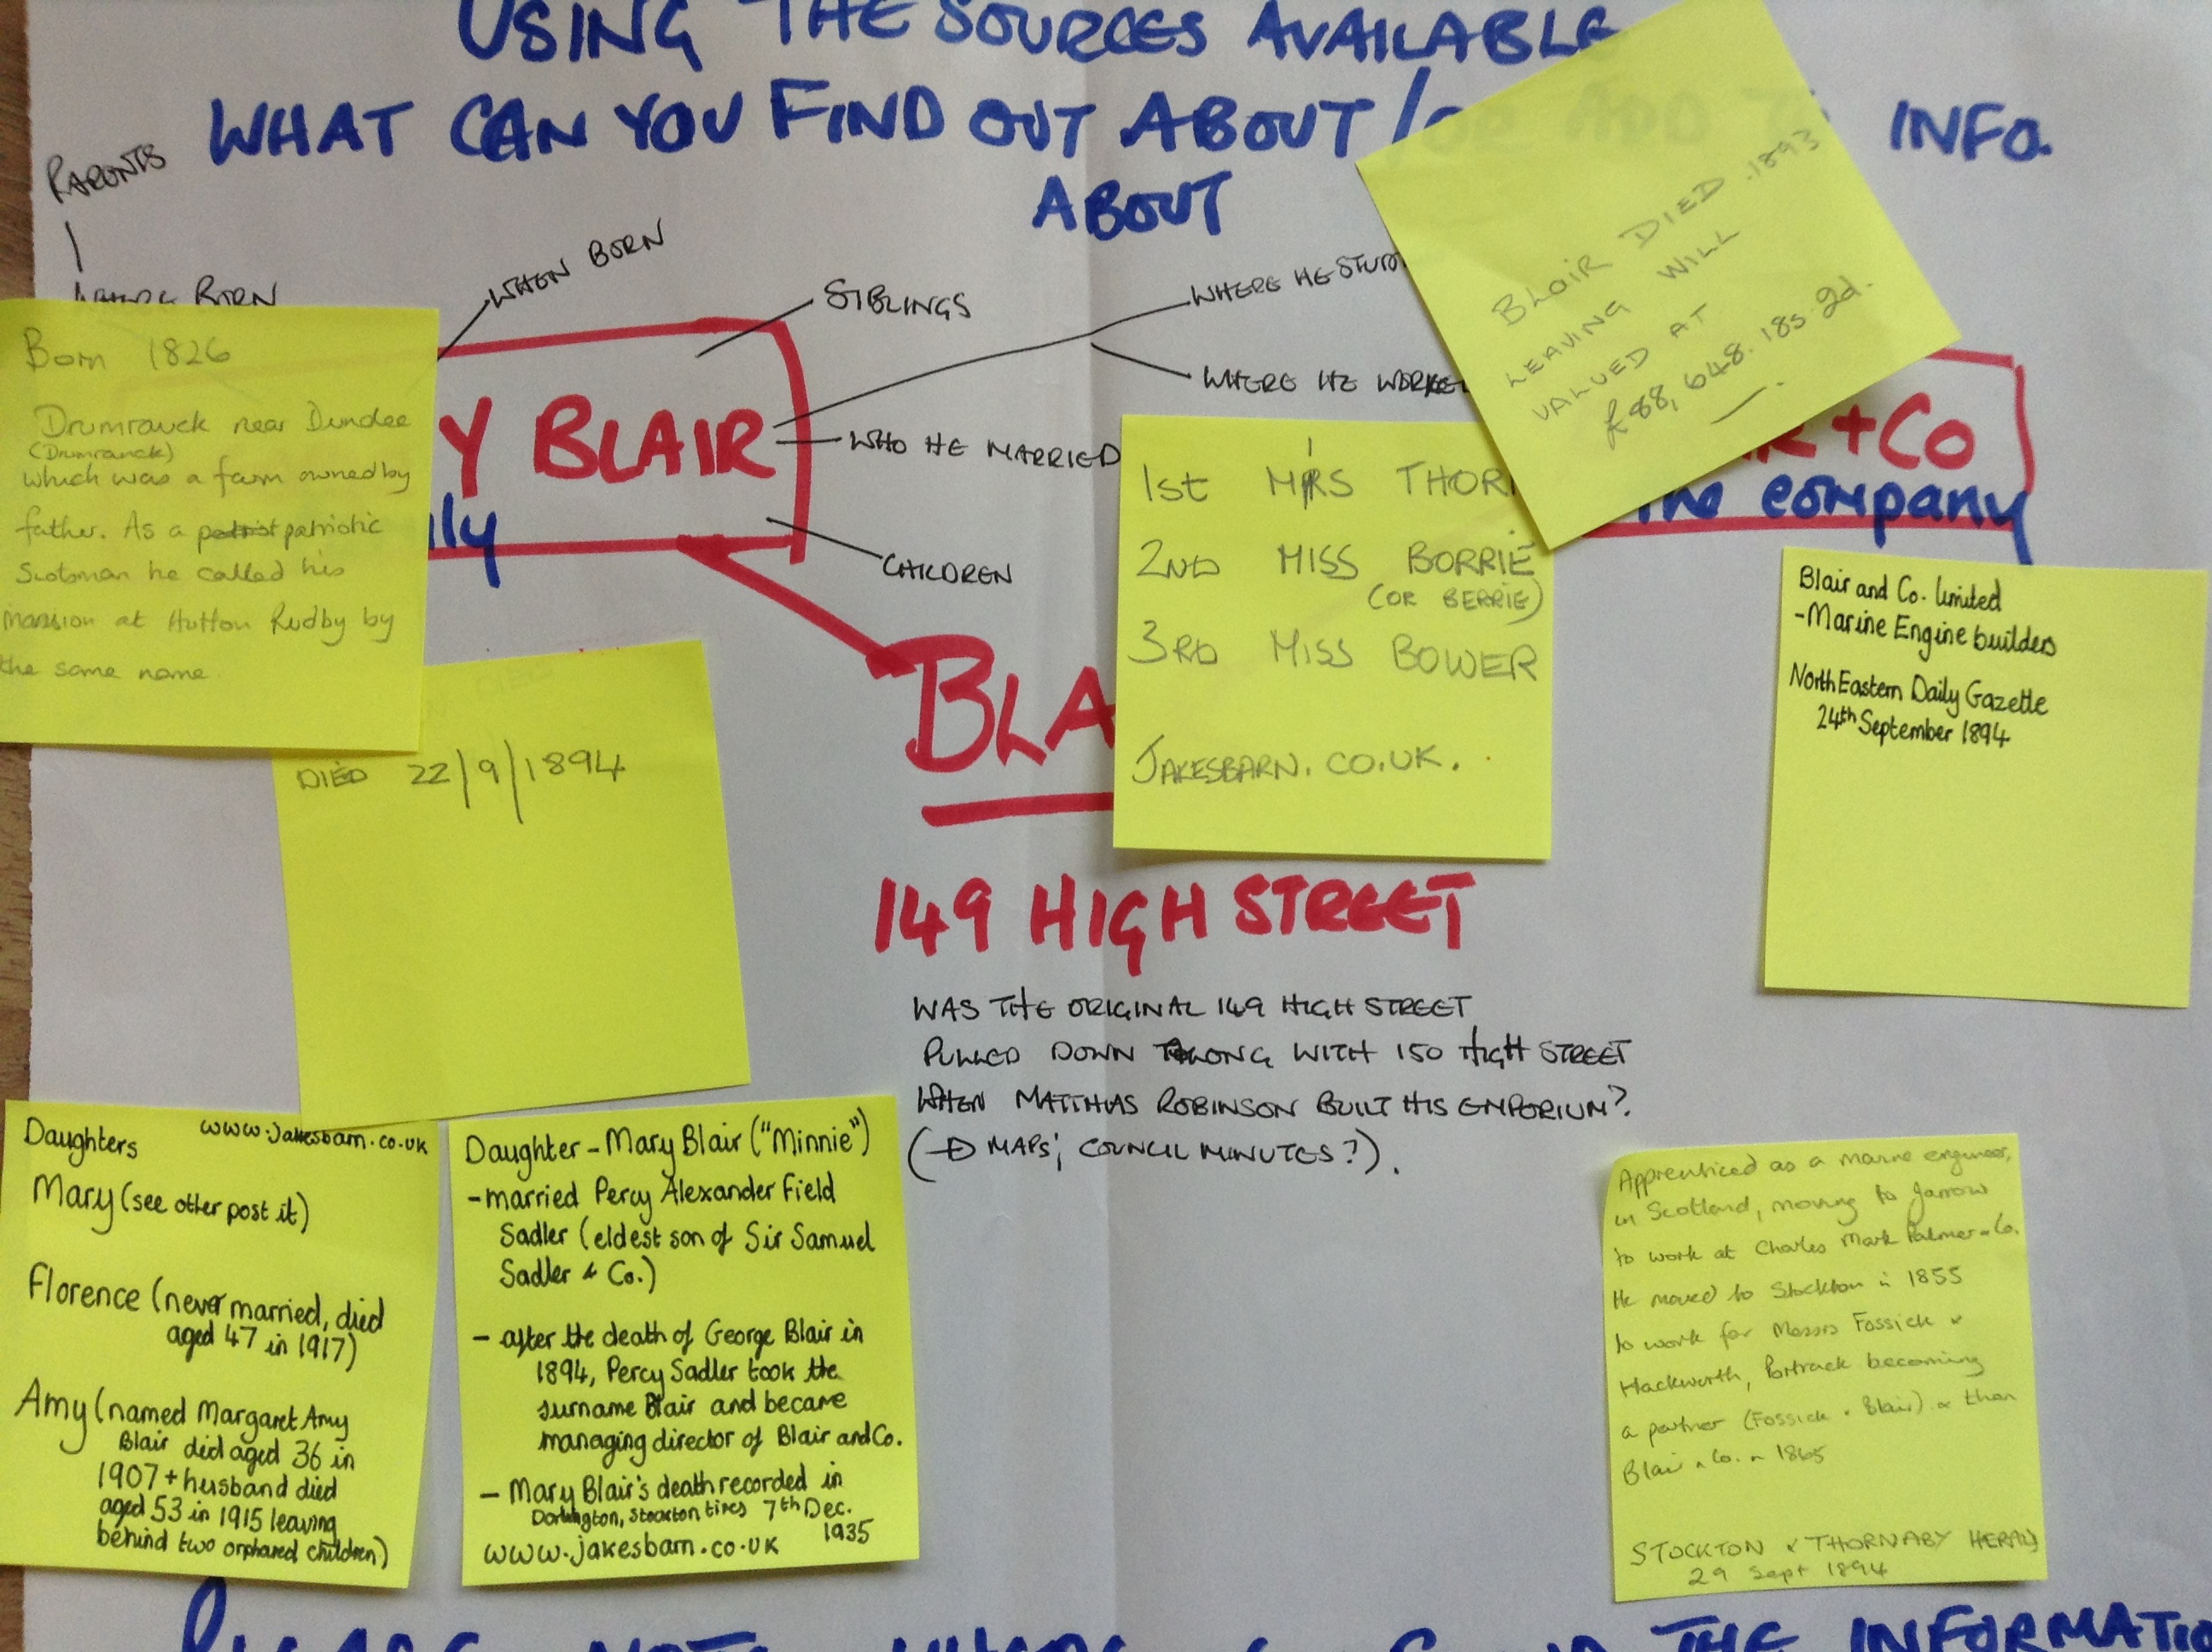 USING THE SOURCES AVAILABLE
WHAT CAN YOU FIND OUT ABOUT / OR ADD TO INFO.
ABOUT
PARENTS
WHERE BORN
WHEN BORN
SIBLINGS
WHERE HE
WHERE HE
WHO HE MARRIED
CHILDREN
Y BLAIR
Born 1826
Drumrauck near Dundee
(Drumranck)
which was a farm owned by
father. As a patriotic
Scotsman he called his
mansion at Hutton Rudby by
the same name.
DIED 22/9/1894
BLAIR DIED 1893
LEAVING WILL
VALUED AT
£88,648. 18s. 2d.
+Co
the company
1st MRS
2ND MISS BORRIE
(OR BERRIE)
3RD MISS BOWER
JAKESBARN.CO.UK.
BLA
149 HIGH STREET
WAS THE ORIGINAL 149 HIGH STREET
PULLED DOWN ALONG WITH 150 HIGH STREET
WHEN MATTHIAS ROBINSON BUILT HIS EMPORIUM?
(→ MAPS; COUNCIL MINUTES?).
Blair and Co. limited
-Marine Engine builders
North Eastern Daily Gazette
24th September 1894
Daughters www.jakesbarn.co.uk
Mary (see other post it)
Florence (never married, died
aged 47 in 1917)
Amy (named Margaret Amy
Blair died aged 36 in
1907 + husband died
aged 53 in 1915 leaving
behind two orphaned children)
Daughter - Mary Blair ("Minnie")
- married Percy Alexander Field
Sadler (eldest son of Sir Samuel
Sadler & Co.)
- after the death of George Blair in
1894, Percy Sadler took the
surname Blair and became
managing director of Blair and Co.
- Mary Blair's death recorded in
Darlington, Stockton times 7th Dec.
1935
www.jakesbarn.co.uk
Apprenticed as a marine engineer,
in Scotland, moving to Jarrow
to work at Charles Mark Palmer & Co.
He moved to Stockton in 1855
to work for Messrs Fossick &
Hackworth, Portrack becoming
a partner (Fossick & Blair) & then
Blair & Co. in 1865
STOCKTON & THORNABY HERALD
29 Sept 1894
THE INFORMATI